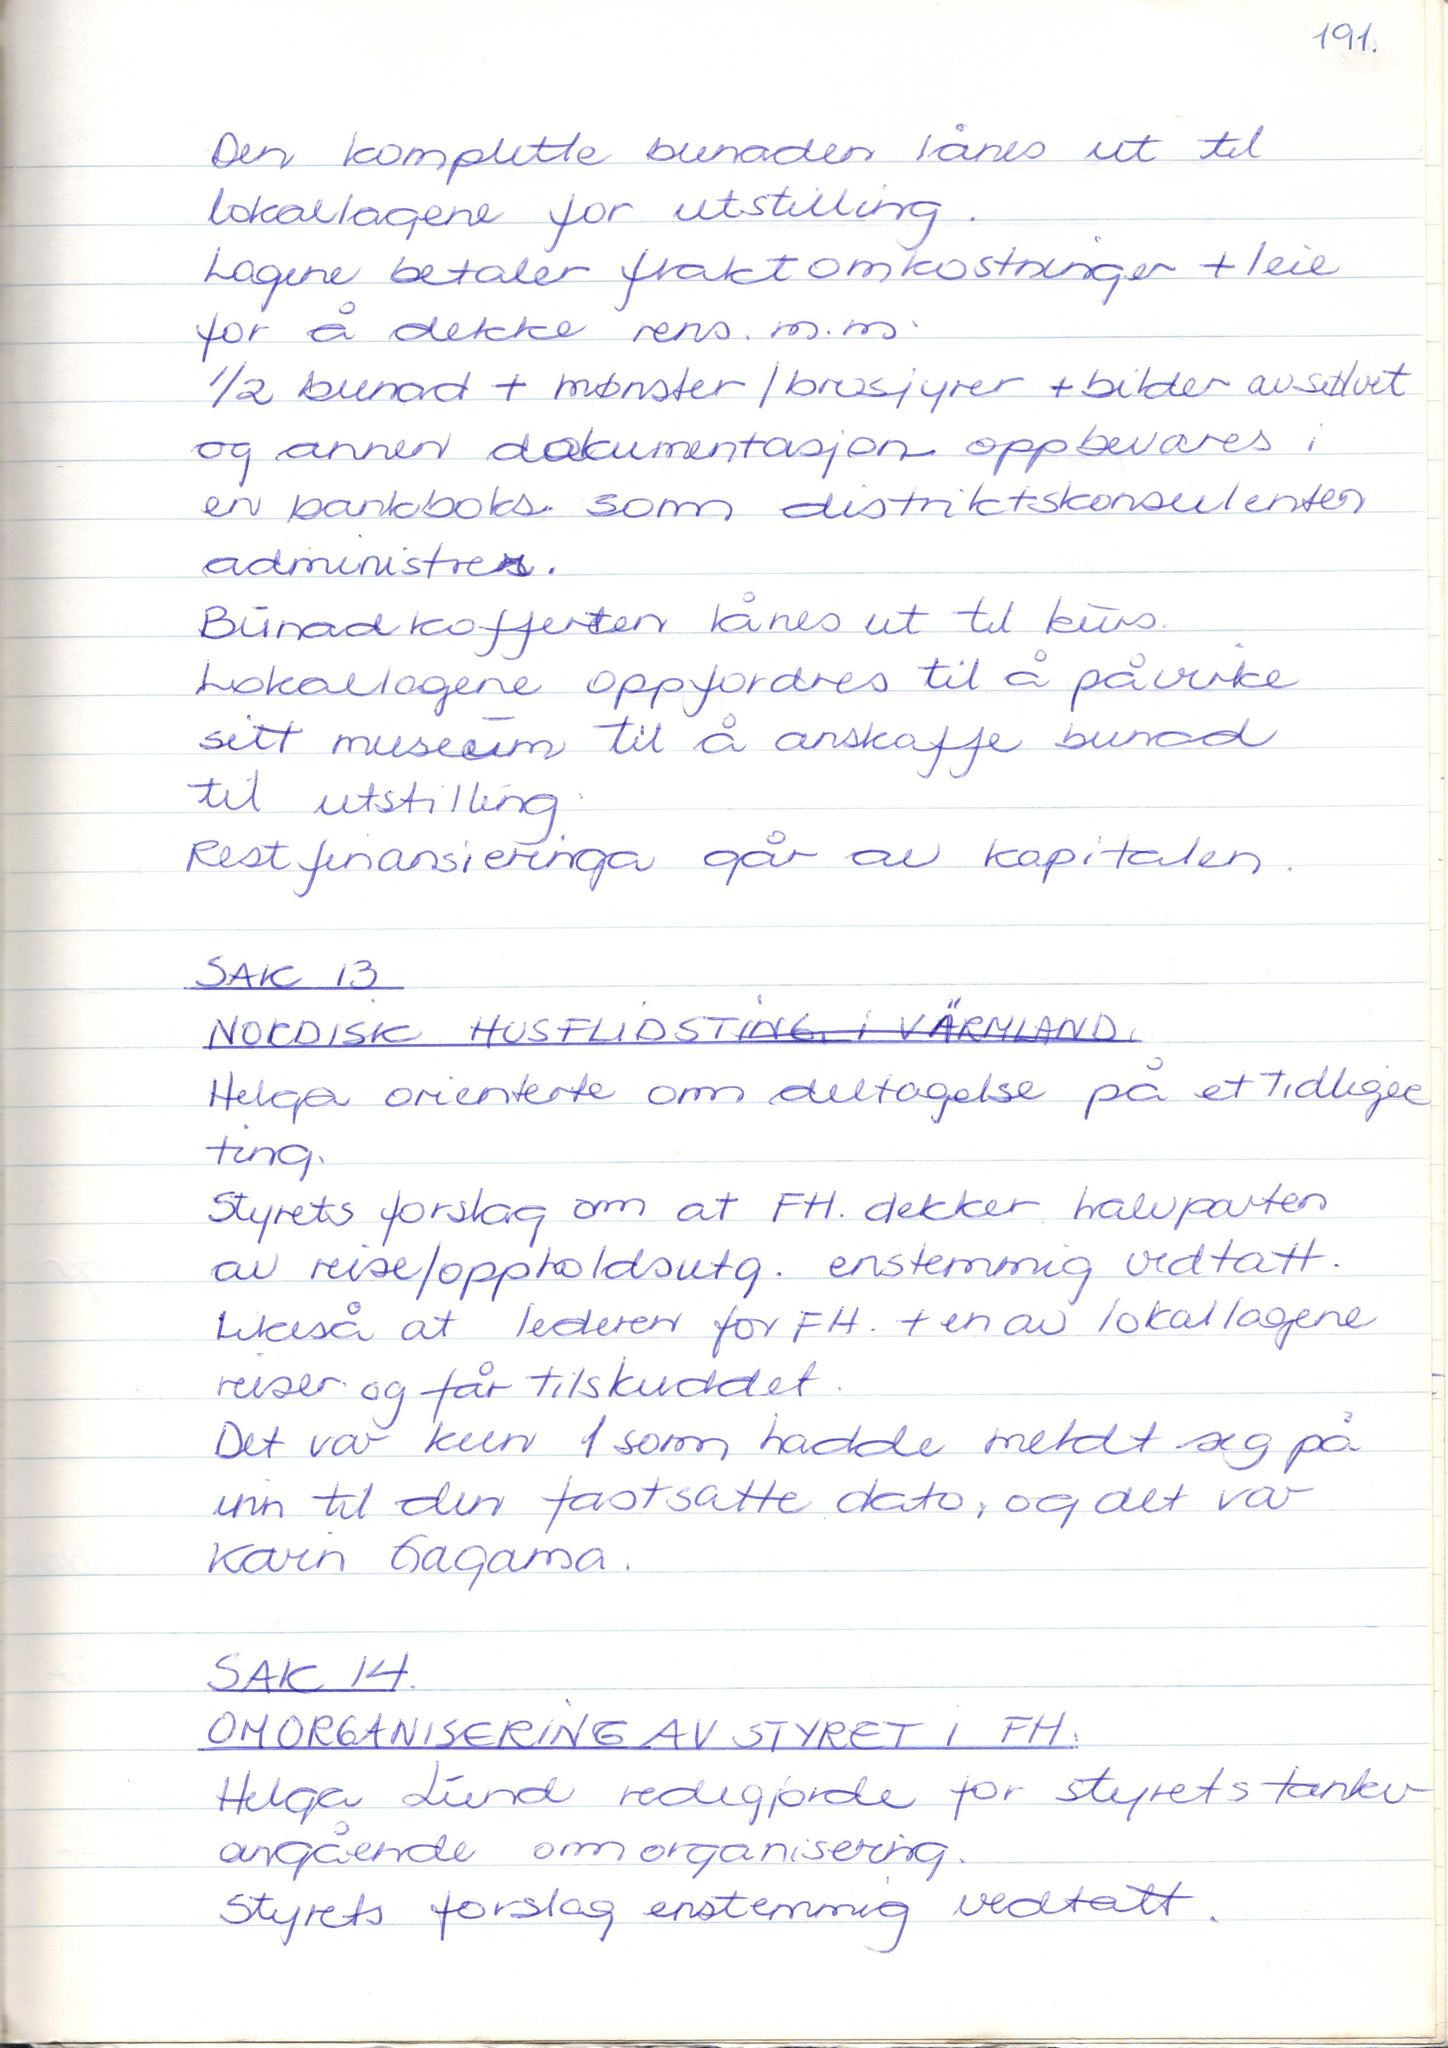 191.
Den komplette bunaden lånes ut til
lokallagene for utstilling.
Lagene betaler fraktomkostninger + leie
for å dekke rens. m.m.
1/2 bunad + mønster / brosjyrer + bilder av sølvet
og annen dokumentasjon oppbevares i
en bankboks som distriktskonsulenten
administrer.
Bunadkofferten lånes ut til kurs.
Lokallagene oppfordres til å påvirke
sitt museum til å anskaffe bunad
til utstilling.
Restfinansieringa går av kapitalen.
SAK 13
NORDISK HUSFLIDSTING I VÄRMLAND.
Helga orienterte om deltagelse på et tidligere
ting.
Styrets forslag om at FH. dekker halvparten
av reise/oppholdsutg. enstemmig vedtatt.
Likeså at lederen for FH. + en av lokallagene
reiser og får tilskuddet.
Det var kun 1 som hadde meldt seg på
inn til den fastsatte dato, og det var
Karin
SAK 14.
OMORGANISERING AV STYRET I FH.
Helga Lund redegjorde for styrets tanker
angående omorganisering.
Styrets forslag enstemmig vedtatt.